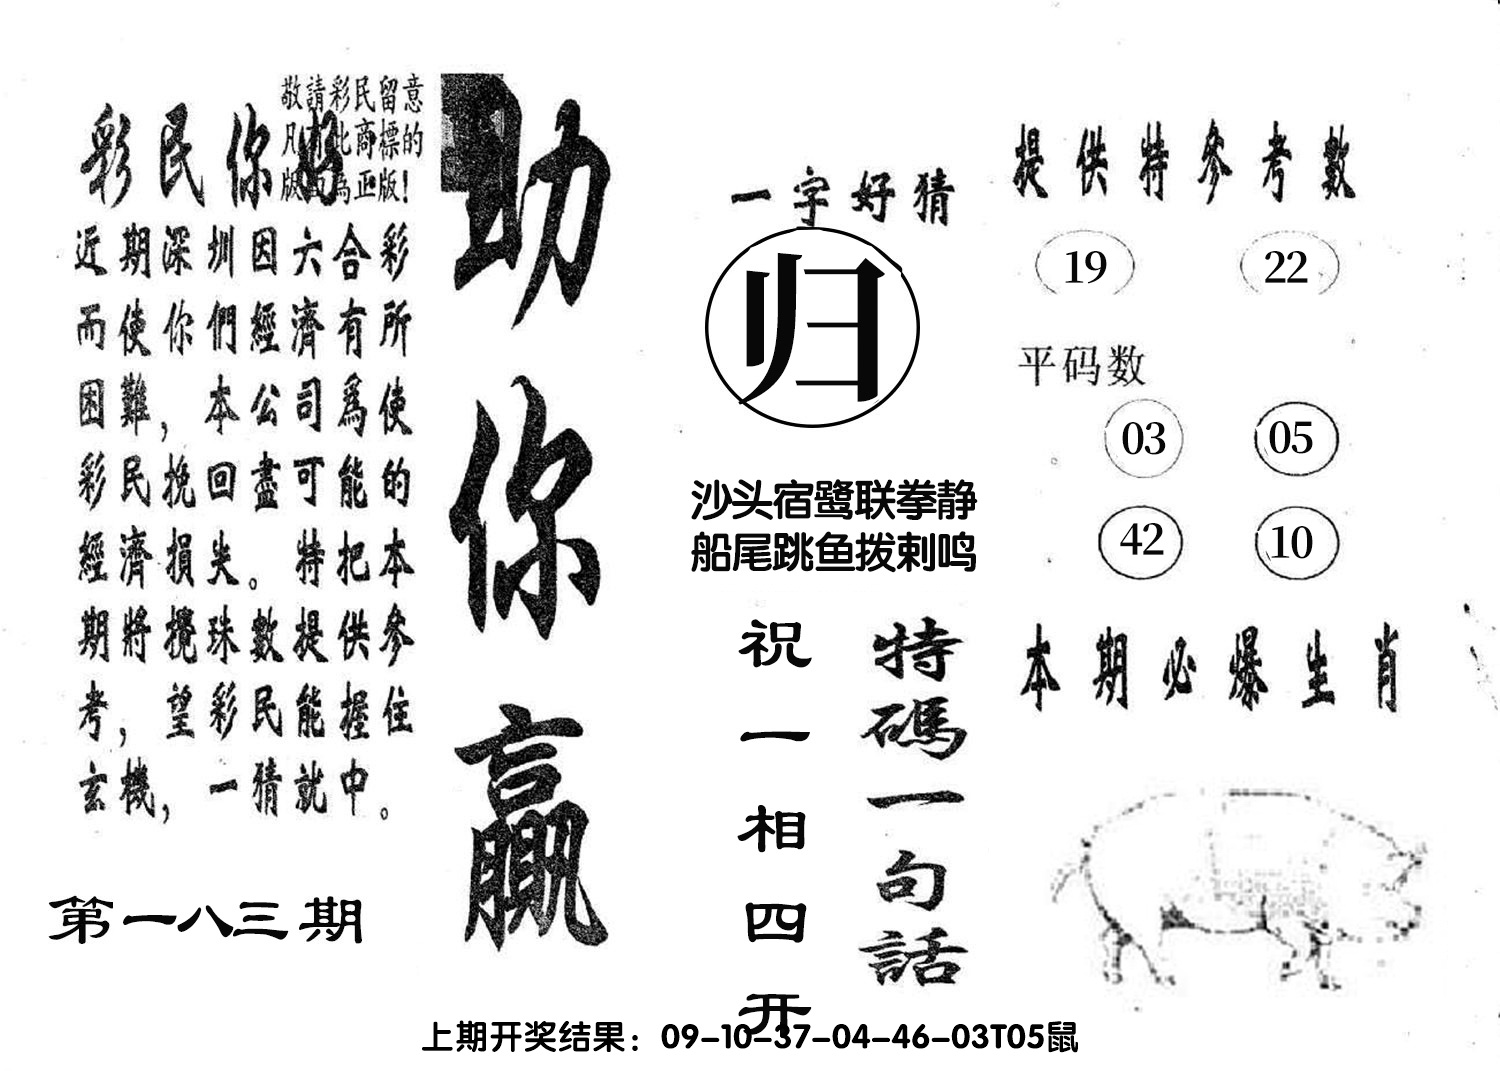 敬請彩民留意
凡有此商標的
版面為正版!
彩民你好
近期深圳因六合彩
而使你們經濟有所
困難，本公司爲使
彩民挽回盡可能的
經濟損失。特把本
期將攪珠數提供參
考，望彩民能握住
玄機，一猜就中。
第一八三期
助你贏
一字好猜
归
沙头宿鹭联拳静
船尾跳鱼拨剌鸣
特碼一句話
祝一相四开
提供特參考數
19 22
平码数
03 05
42 10
本期必爆生肖
上期开奖结果：09-10-37-04-46-03T05鼠